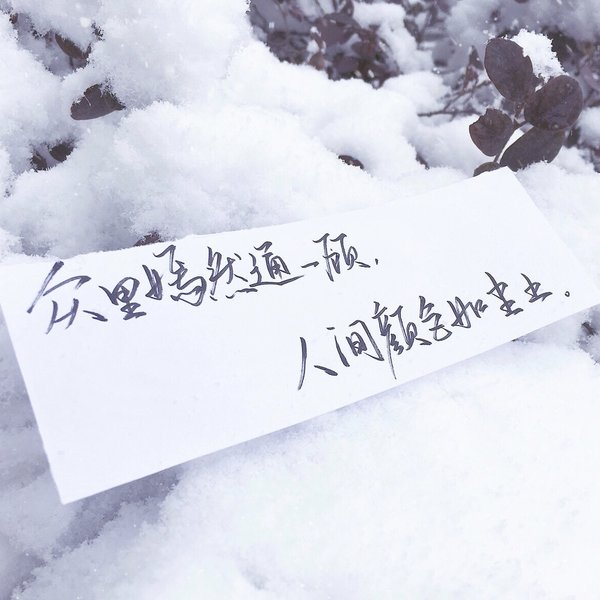 众里嫣然通一顾，
人间颜色如尘土。